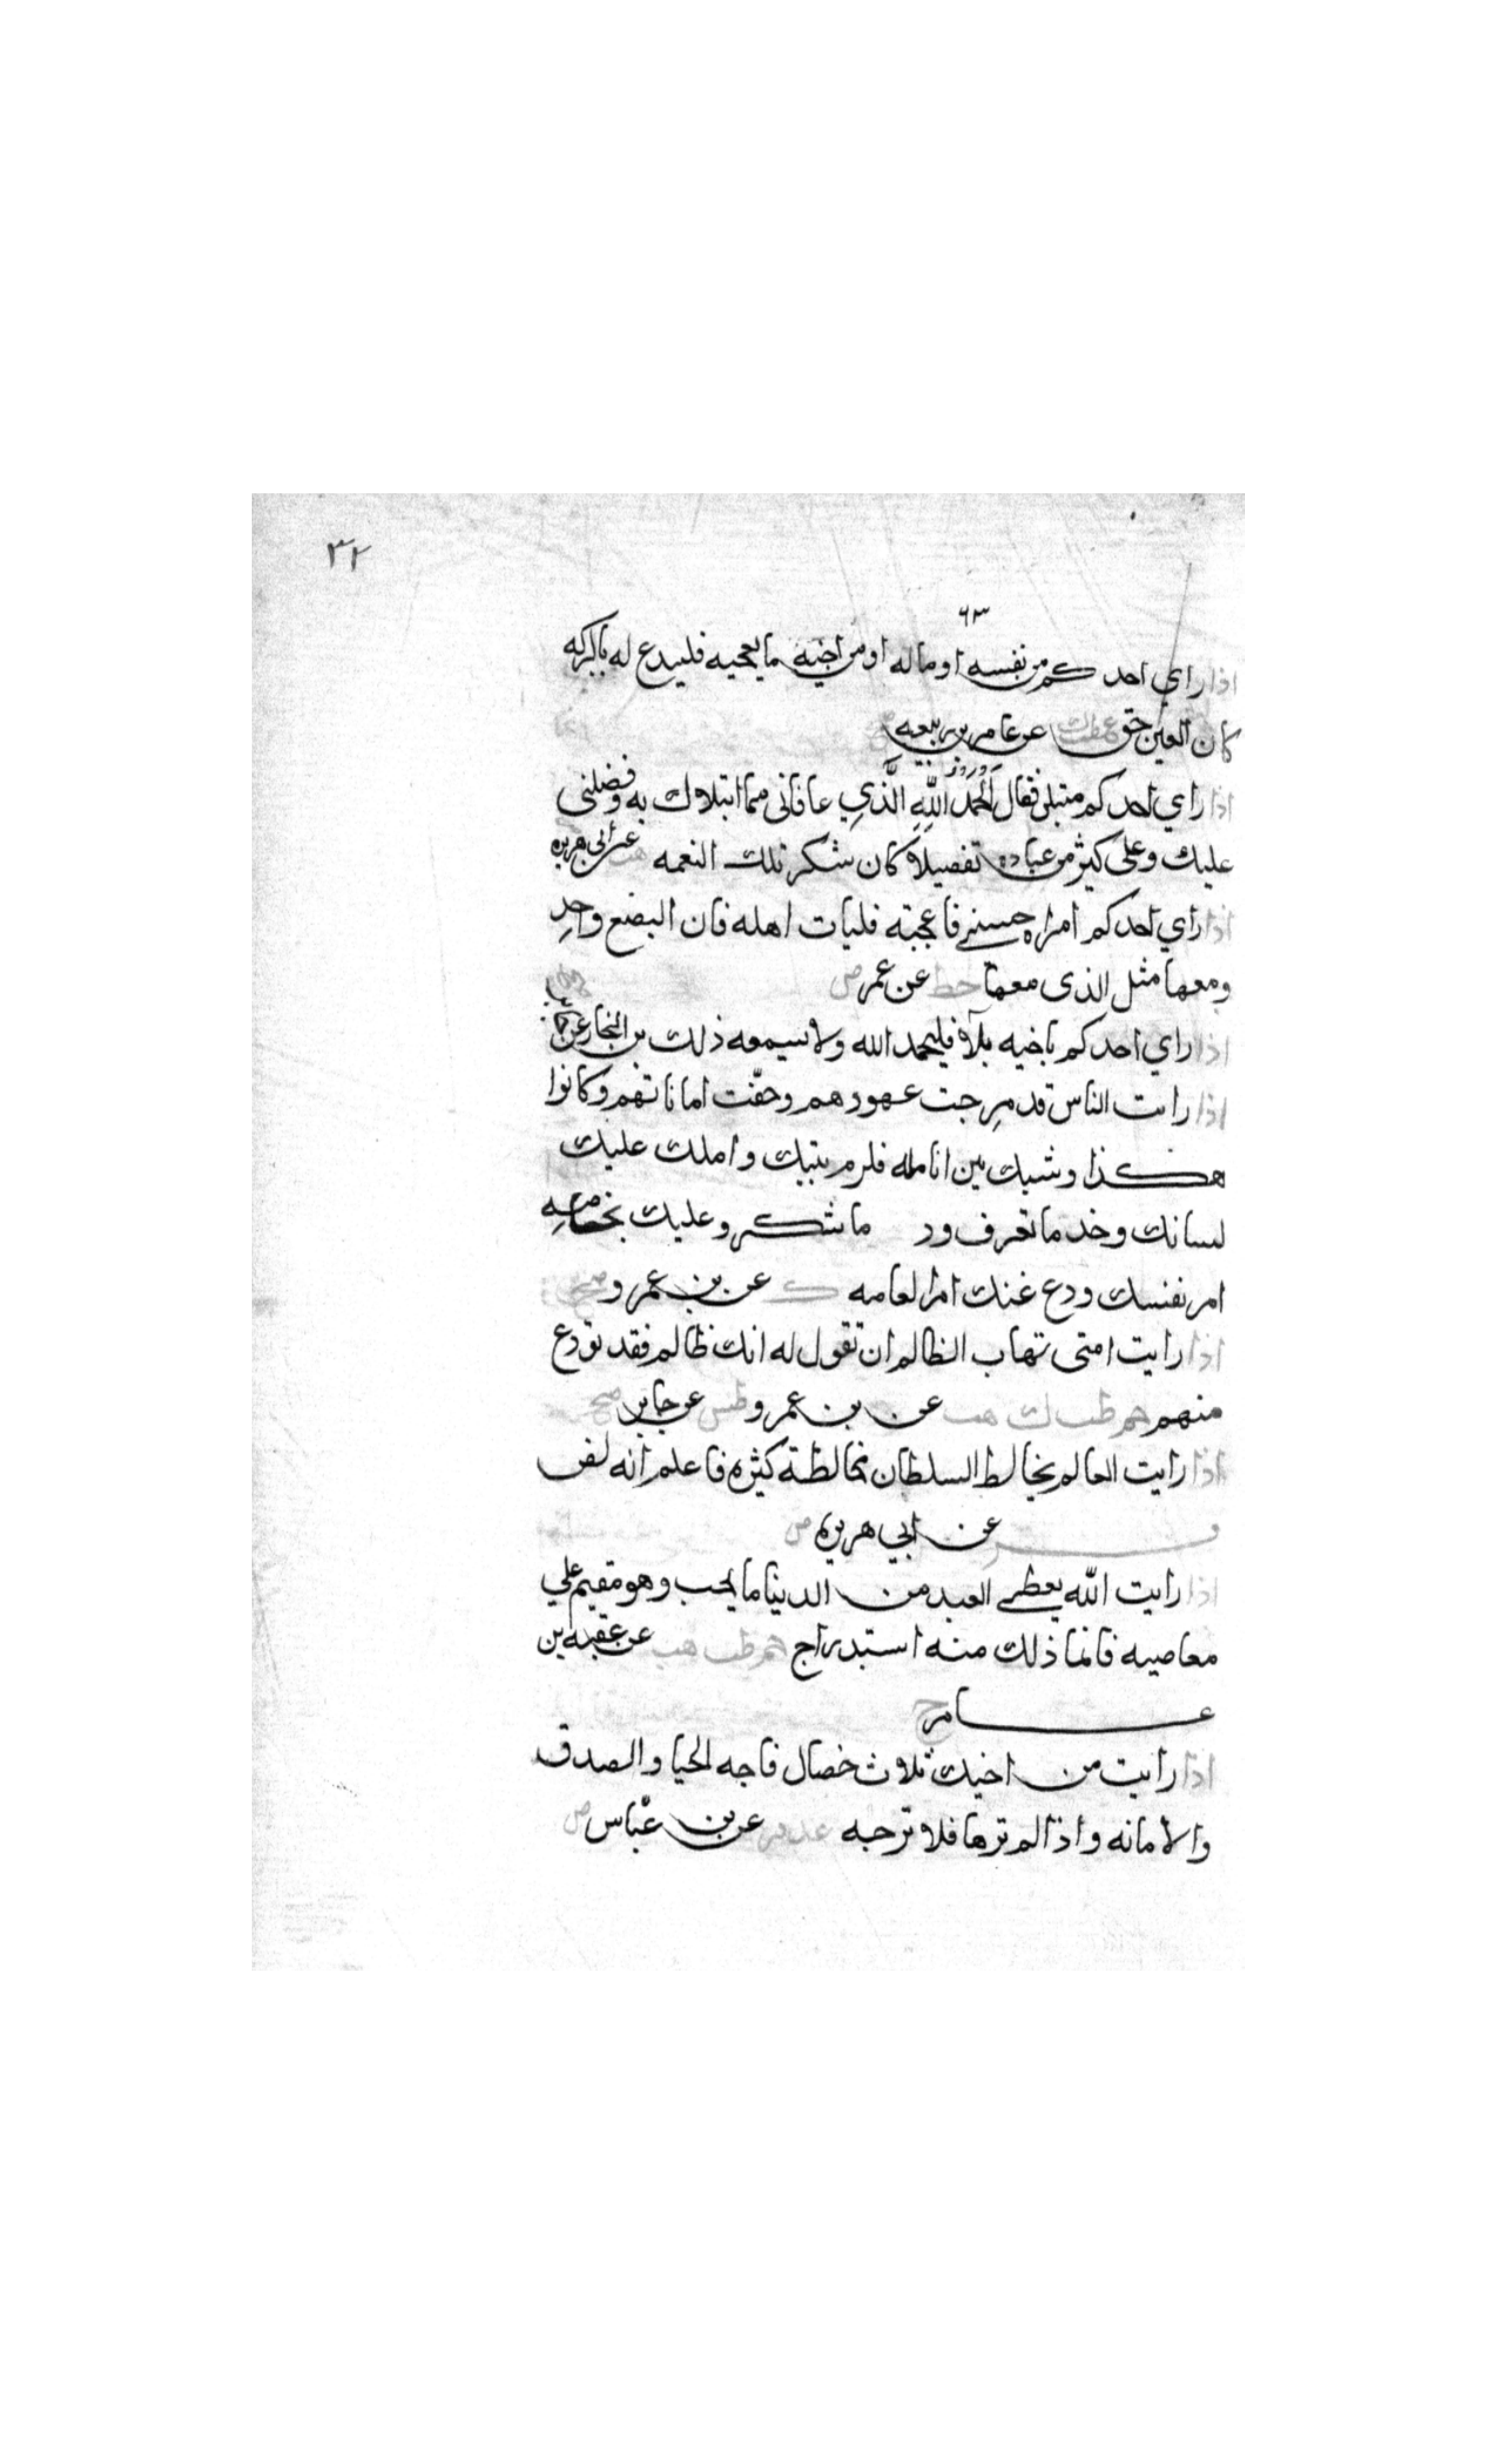 ٣٢
٦٣
اذا راي احدكم من نفسه او ماله او من اخيه ما يعجبه فليدع له بالبركه
فان العين حق عن عامر بن ربيعه
اذا راي احدكم مبتلى فقال الحمد لله الَّذِي عافانى مما ابتلاك به وفضلنى
عليك وعلى كثير من عباده تفضيلا كان شكر تلك النعمه هب عن ابى هريره
اذا راي احدكم امراه حسنى فاعجبته فليات اهله فان البضع واحد
ومعها مثل الذى معها خط عن عمر ض
اذا راي احدكم باخيه بلآء فليحمد الله ولا يسمعه ذلك بن النجار عن
اذا رايت الناس قد مرجت عهودهم وخفّت اماناتهم وكانوا
هكذا وشبك بين انامله فلزم بيتك واملك عليك
لسانك وخد ما تعرف ود ما تنكر وعليك بخاصه
امر نفسك ودع عنك امر العامه ك عن بن عمرو صح
اذا رايت امتى تهاب الظالم ان تقول له انك ظالم فقد تودع
منهم حم طب ك هب عن بن عمرو طس عن جابر صح
اذا رايت العالم يخالط السلطان مخالطة كثيره فاعلم انه لص
فر عن ابي هريره ض
اذا رايت الله يعطي العبد من الدينا ما يحب وهو مقيم علي
معاصيه فانما ذلك منه استدراج حم طب هب عن عقبه بن
عامر ح
اذا رايت من اخيك ثلاث خصال فاجه الحيا والصدق
والامانه واذا لم ترها فلا ترجه عد فر عن بن عباس ض